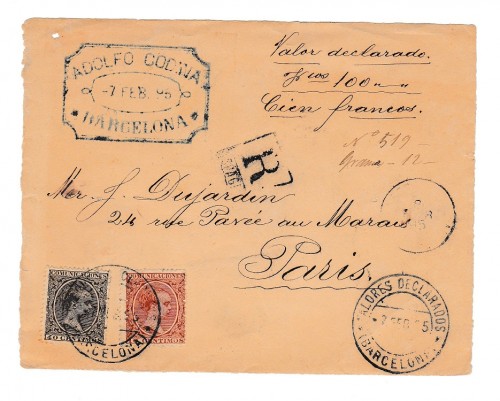 ADOLFO CODINA
-7 FEB. 95
BARCELONA
Valor declarado.
Fcos 100 „ „
Cien francos.
Nº 519
R
Mer J. Dujardin
24 rue Pavée au Marais
Paris.
COMUNICACIONES
COMUNICACIONES
CENTIMOS
BARCELONA
VALORES DECLARADOS
-7 FEB 95
BARCELONA